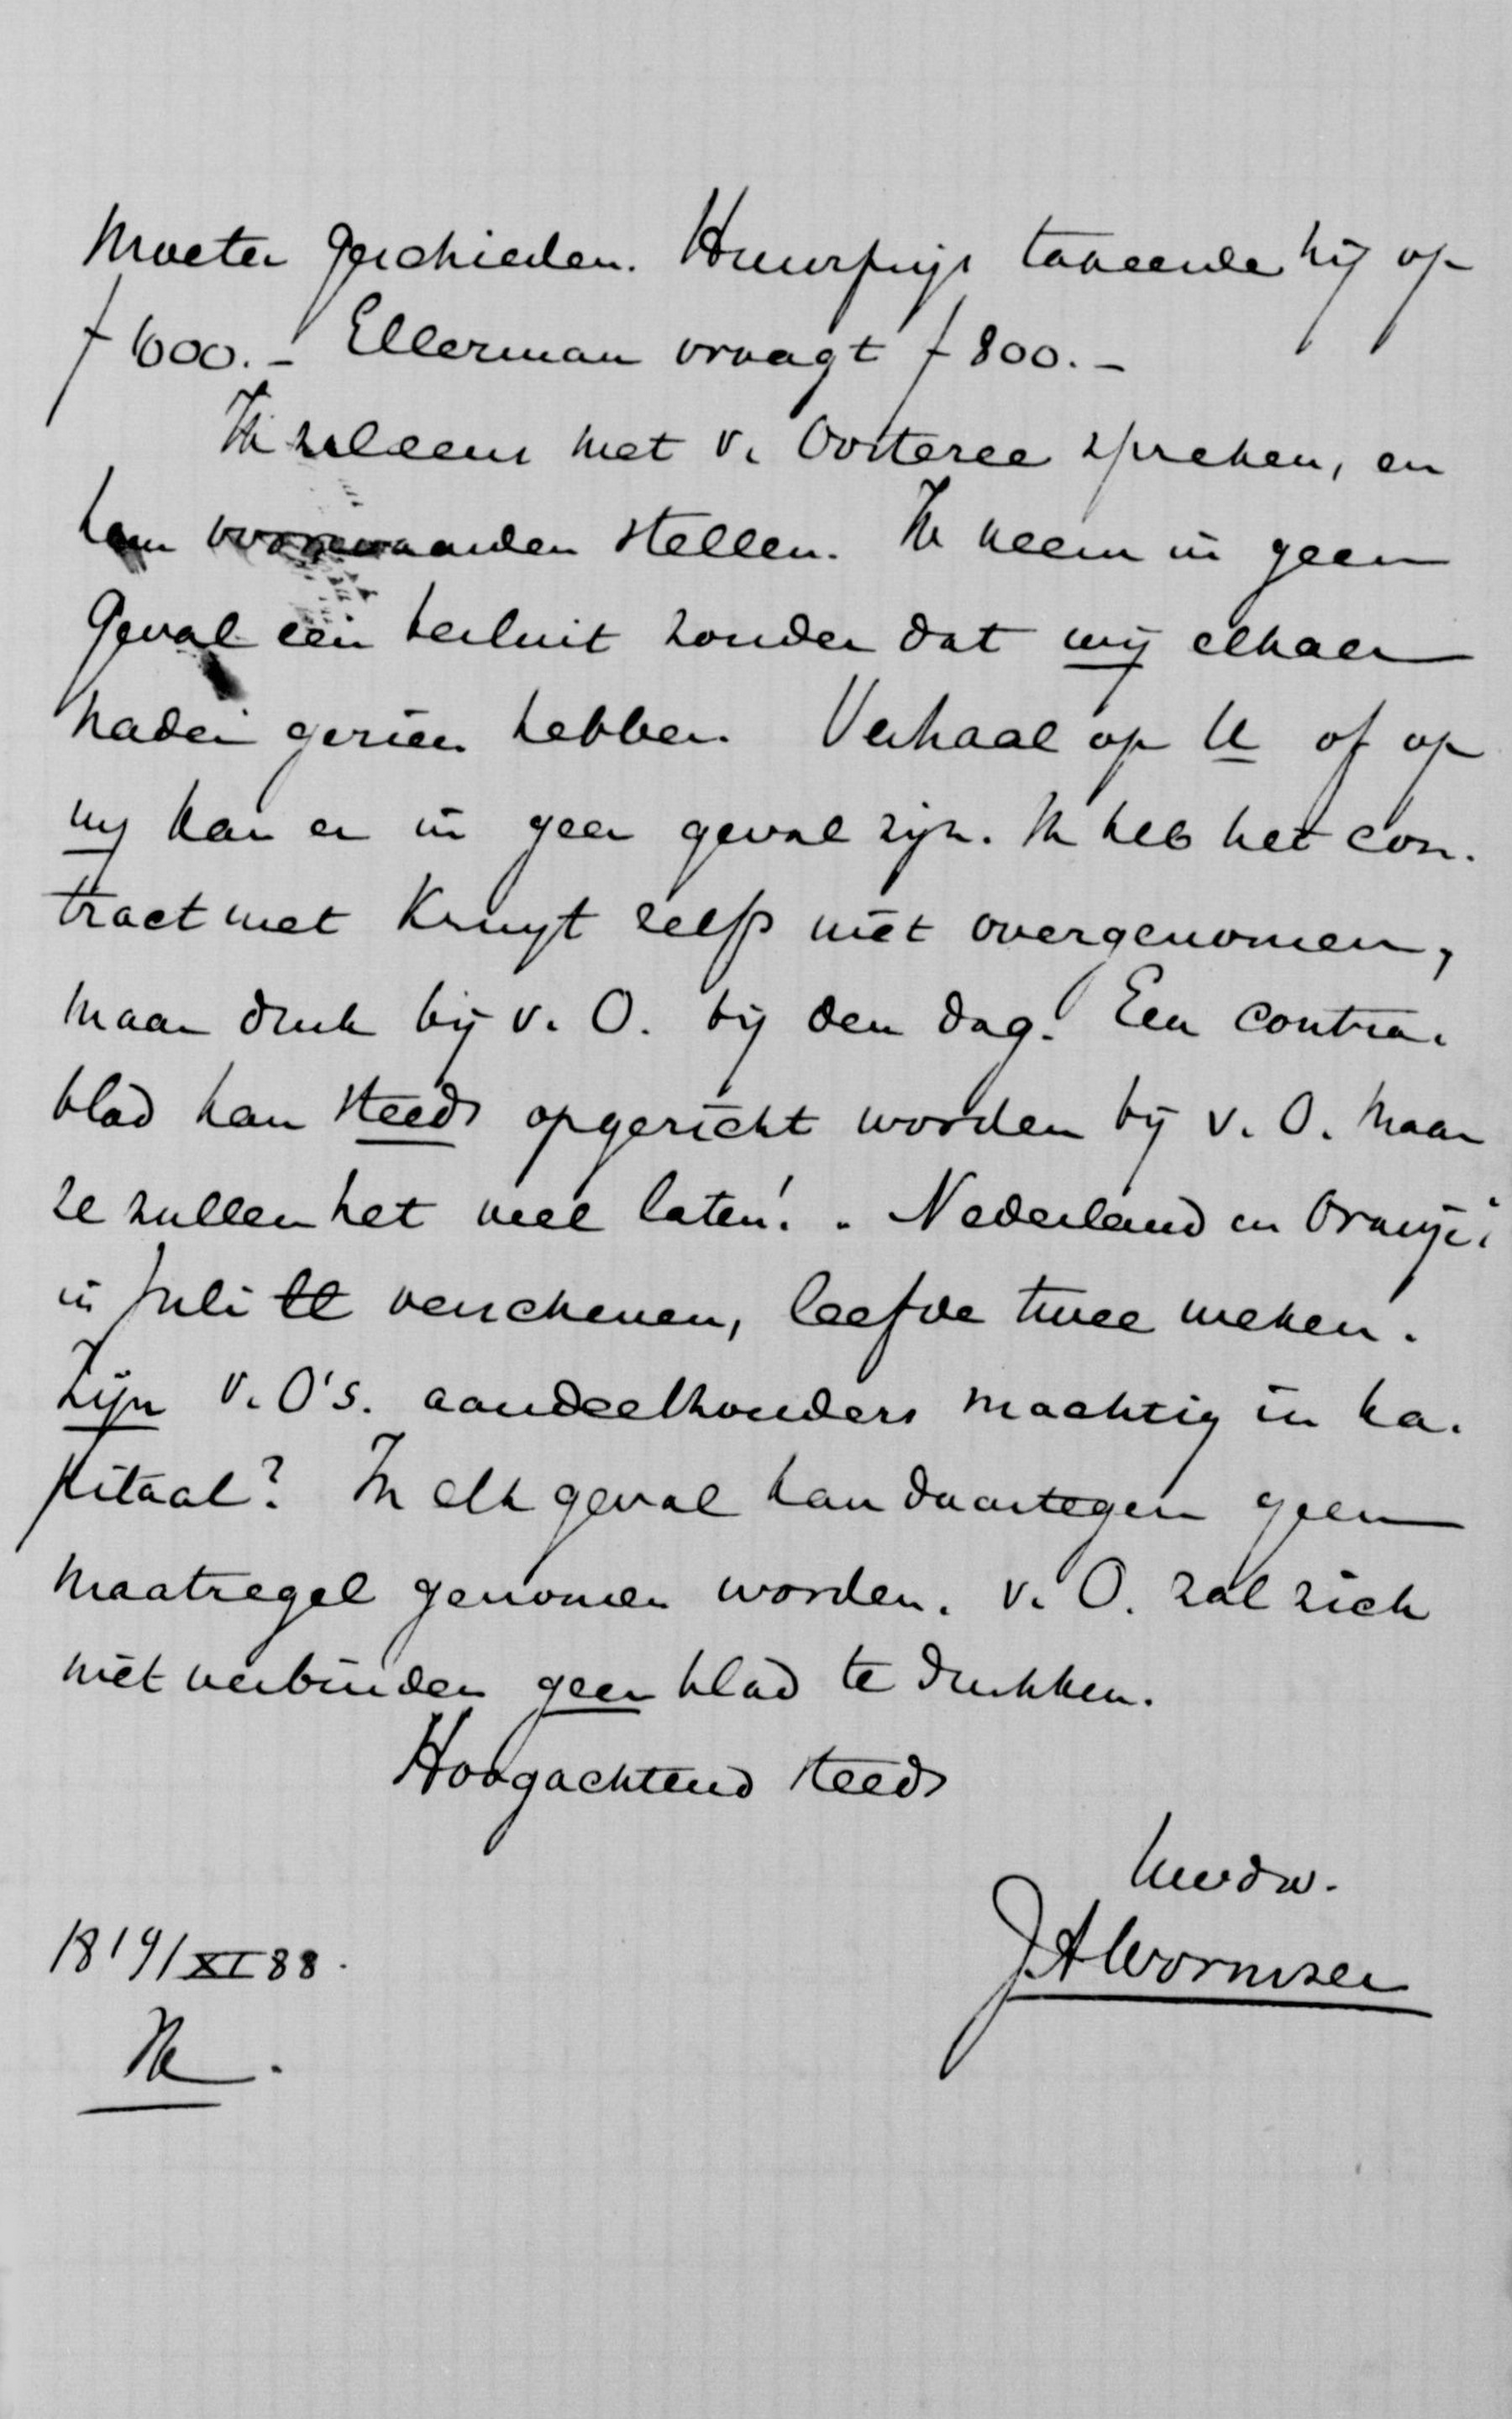 moeten geschieden. Huurprijs taxeerde hij op
f 600.- Ellerman vraagt f 800.-
Ik zal eens met v. Oosteree spreken, en
hem voorwaarden stellen. Ik neem in geen
geval een besluit zonder dat wij elkaar
nader gezien hebben. Verhaal op U of op
mij kan er in geen geval zijn. Ik heb het con-
tract met Kruyt zelfs niet overgenomen,
maar druk bij v. O. bij den dag. Een contra-
blad kan steeds opgericht worden bij v. O. maar
ze zullen het wel laten! . Nederland en Oranje
in Juli verschenen, leefde twee weken.
Zijn v. O's. aandeelhouders machtig in ka-
pitaal? In elk geval kan daartegen geen
maatregel genomen worden. v. O. zal zich
niet verbinden geen blad te drukken.
Hoogachtend steeds
Uwdw.
JAWormser
1819/XI88.